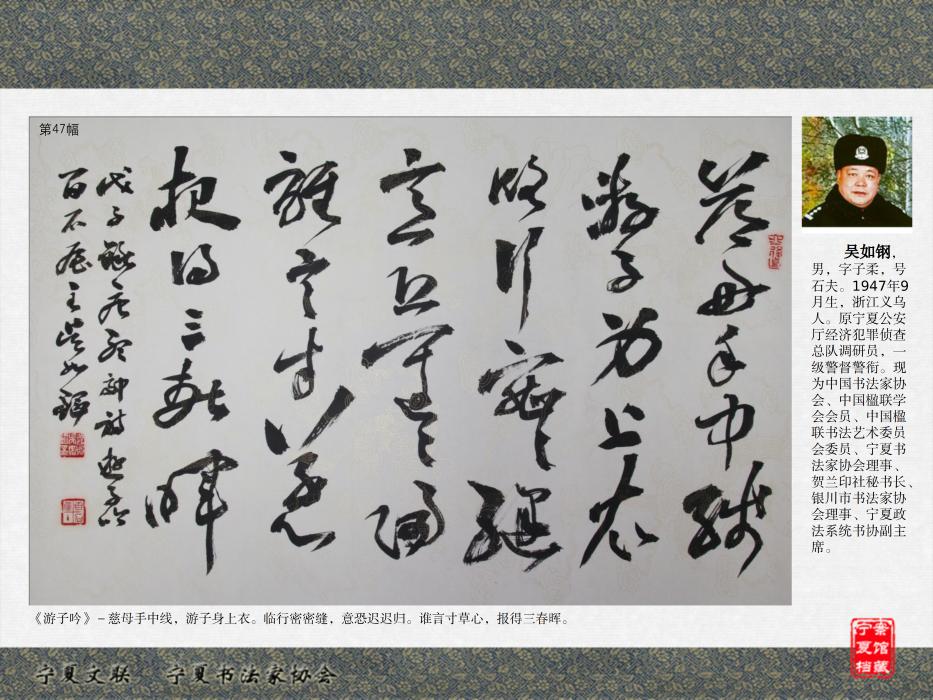 第47幅
慈母手中线
游子身上衣
临行密密缝
意恐迟迟归
谁言寸草心
报得三春晖
吴如钢,
男，字子柔，号
石夫。1947年9
月生，浙江义乌
人。原宁夏公安
厅经济犯罪侦查
总队调研员，一
级警督警衔。现
为中国书法家协
会、中国楹联学
会会员、中国楹
联书法艺术委员
会委员、宁夏书
法家协会理事、
贺兰印社秘书长、
银川市书法家协
会理事、宁夏政
法系统书协副主
席。
《游子吟》–慈母手中线，游子身上衣。临行密密缝，意恐迟迟归。谁言寸草心，报得三春晖。
宁夏文联 宁夏书法家协会
宁夏档案馆藏